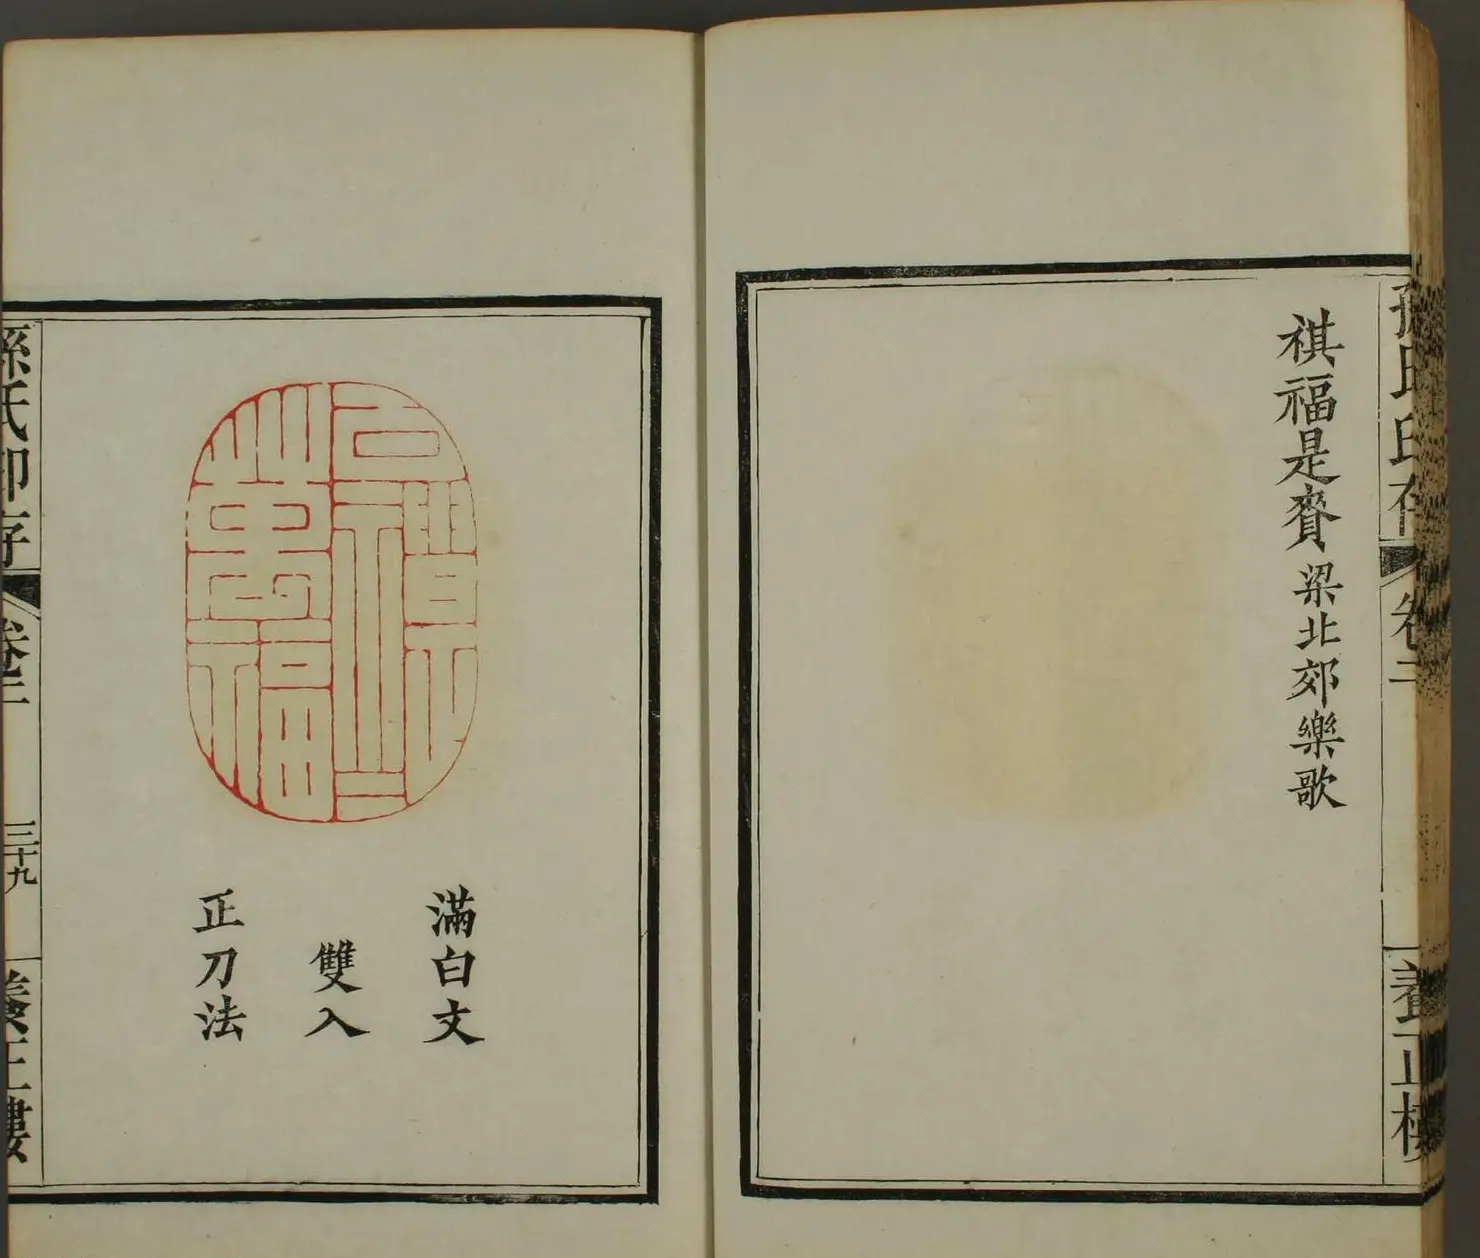 孫氏印存
卷二
養正樓
祺福是賚 梁北郊樂歌
滿白文
雙入
正刀法
孫氏印存
卷
三十九
養正樓